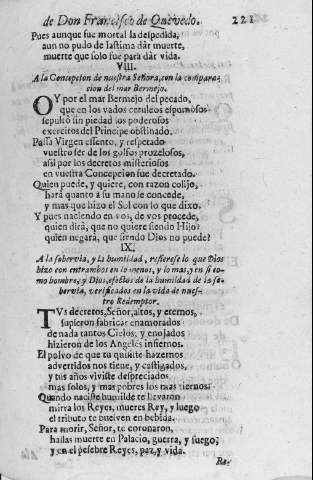 de Don Francisco de Quevedo. 221
Pues aunque fue mortal la despedida,
aun no pudo de lastima dàr muerte,
muerte que solo fue para dàr vida.
VIII.
A la Concepcion de nuestra Señora, con la compara-
cion del mar Bermejo.
OY por el mar Bermejo del pecado,
que en los vados ceruleos espumosos
sepultò sin piedad los poderosos
exercitos del Principe obstinado.
Passa Virgen essento, y respetado
vuestro ser de los golfos prozelosos,
assi por los decretos misteriosos
en vuestra Concepcion fue decretado.
Quien puede, y quiere, con razon colijo,
harà quanto à su mano se concede,
y mas que hizo el Sol con lo que dixo.
Y pues naciendo en vos, de vos procede,
quien dirà, que no quiere siendo Hijo?
quien negarà, que siendo Dios no puede?
IX.
A la sobervia, y la humildad, refierese lo que Dios
hizo con entrambos en lo menos, y lo mas, y en si co-
mo hombre, y Dios, efectos de la humildad de la so-
bervia, verificados en la vida de nues-
tro Redemptor.
TVs decretos, Señor, altos, y eternos,
supieron fabricar enamorados
de nada tantos Cielos, y enojados
hizieron de los Angeles infiernos.
El polvo de que tu quisiste hazernos
advertidos nos tiene, y castigados,
y tus años viviste despreciados
mas solos, y mas pobres los mas tiernos.
Quando naciste humilde te llevaron
mirra los Reyes, mueres Rey, y luego
el tributo te buelven en bebida.
Para morir, Señor, te coronaron,
hallas muerte en Palacio, guerra, y fuego,
y en el pesebre Reyes, paz, y vida.